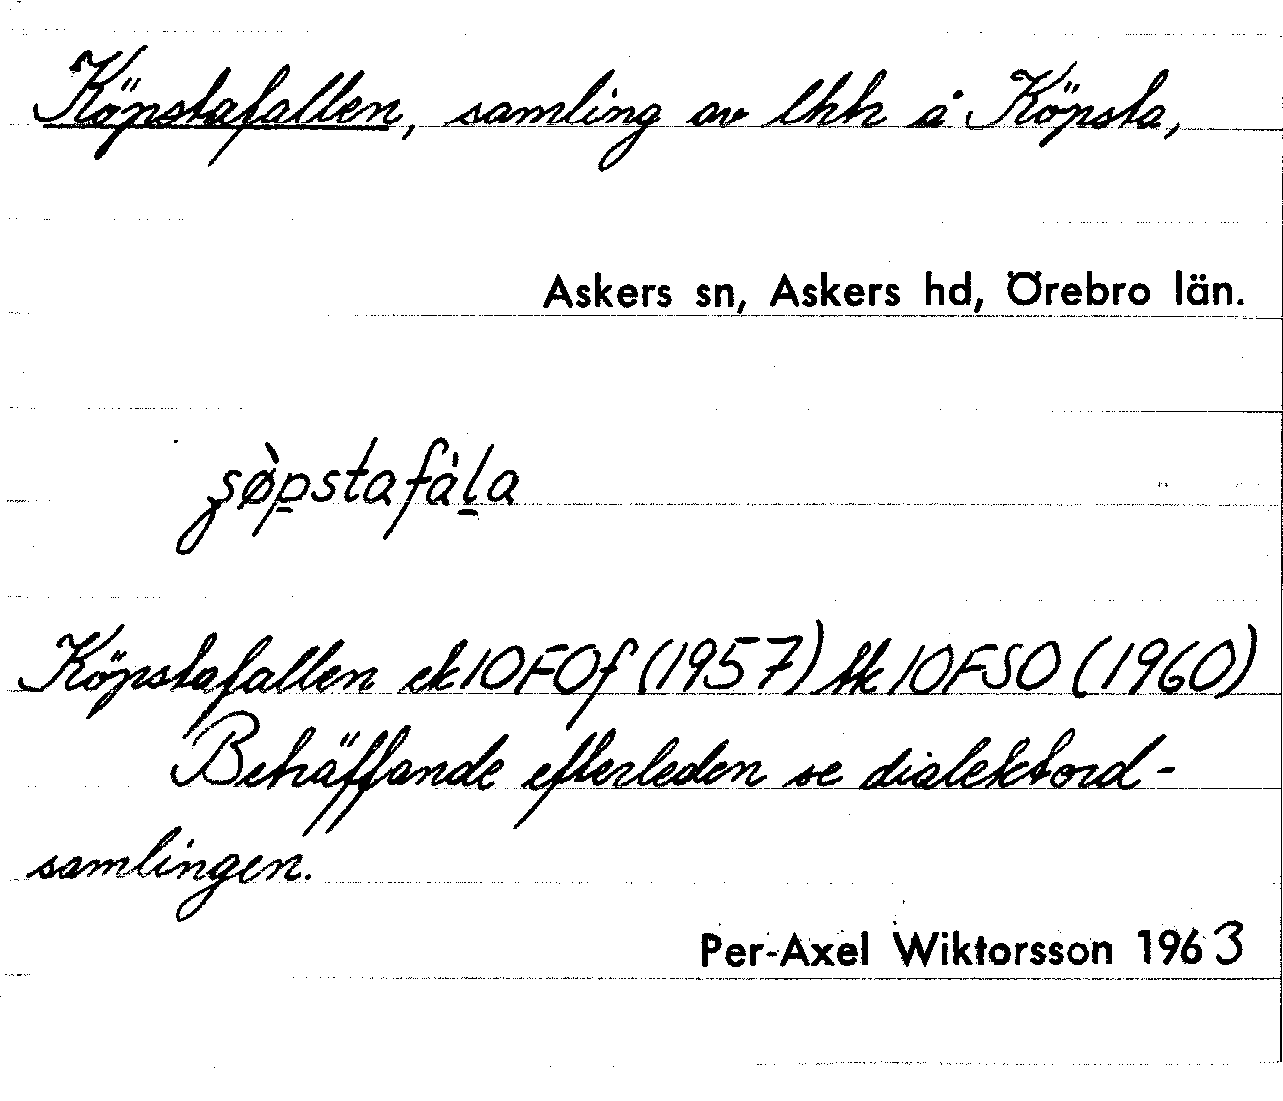 Köpstafallen, samling av lhh å Köpsta,
Askers sn, Askers hd, Örebro län.
şø̀p̱stafàḻa
Köpstafallen ek 10F0f (1957) tk 10FSO (1960)
Beträffande efterleden se dialektord-
samlingen.
Per-Axel Wiktorsson 1963